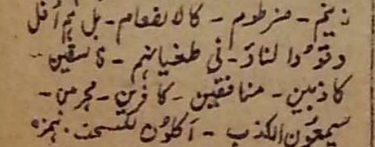 زنیم - خرطوم - کالانعام - بل ہم اضل
وقود النار - فی طغیانہم - فاسقین -
کاذبین - منافقین - کافرین - مجرمین -
سمٰعون الکذب - اکٰلون للسحت - ہمزہ